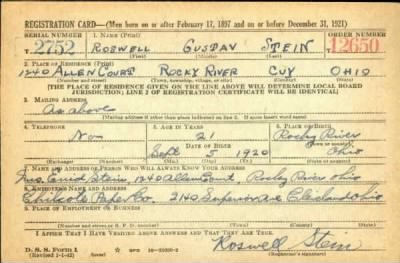 REGISTRATION CARD—(Men born on or after February 17, 1897 and on or before December 31, 1921)
SERIAL NUMBER
1. NAME (Print)
ORDER NUMBER
T 2752
ROSWELL GUSTAV STEIN
12650
2. PLACE OF RESIDENCE (Print)
1240 ALLEN COURT ROCKY RIVER CUY OHIO
(Number and street) (Town, township, village, or city) (County) (State)
[THE PLACE OF RESIDENCE GIVEN ON THE LINE ABOVE WILL DETERMINE LOCAL BOARD JURISDICTION; LINE 2 OF REGISTRATION CERTIFICATE WILL BE IDENTICAL]
3. MAILING ADDRESS
As above
[Mailing address if other than place indicated on line 2. If same insert word same]
4. TELEPHONE
5. AGE IN YEARS
6. PLACE OF BIRTH
21
Rocky River
DATE OF BIRTH
(Town or county)
Sept 5 1920
Ohio
(Exchange) (Number)
(Mo.) (Day) (Yr.)
(State or country)
7. NAME AND ADDRESS OF PERSON WHO WILL ALWAYS KNOW YOUR ADDRESS
Mrs. Enid Stein, 1240 Allen Court, Rocky River Ohio
8. EMPLOYER'S NAME AND ADDRESS
Chilcote Paper Co. 2140 Superior Ave Cleveland Ohio
9. PLACE OF EMPLOYMENT OR BUSINESS
(Number and street or R. F. D. number) (Town) (County) (State)
I AFFIRM THAT I HAVE VERIFIED ABOVE ANSWERS AND THAT THEY ARE TRUE.
D. S. S. Form 1
(Revised 1-1-42)
Roswell Stein
(Registrant's signature)